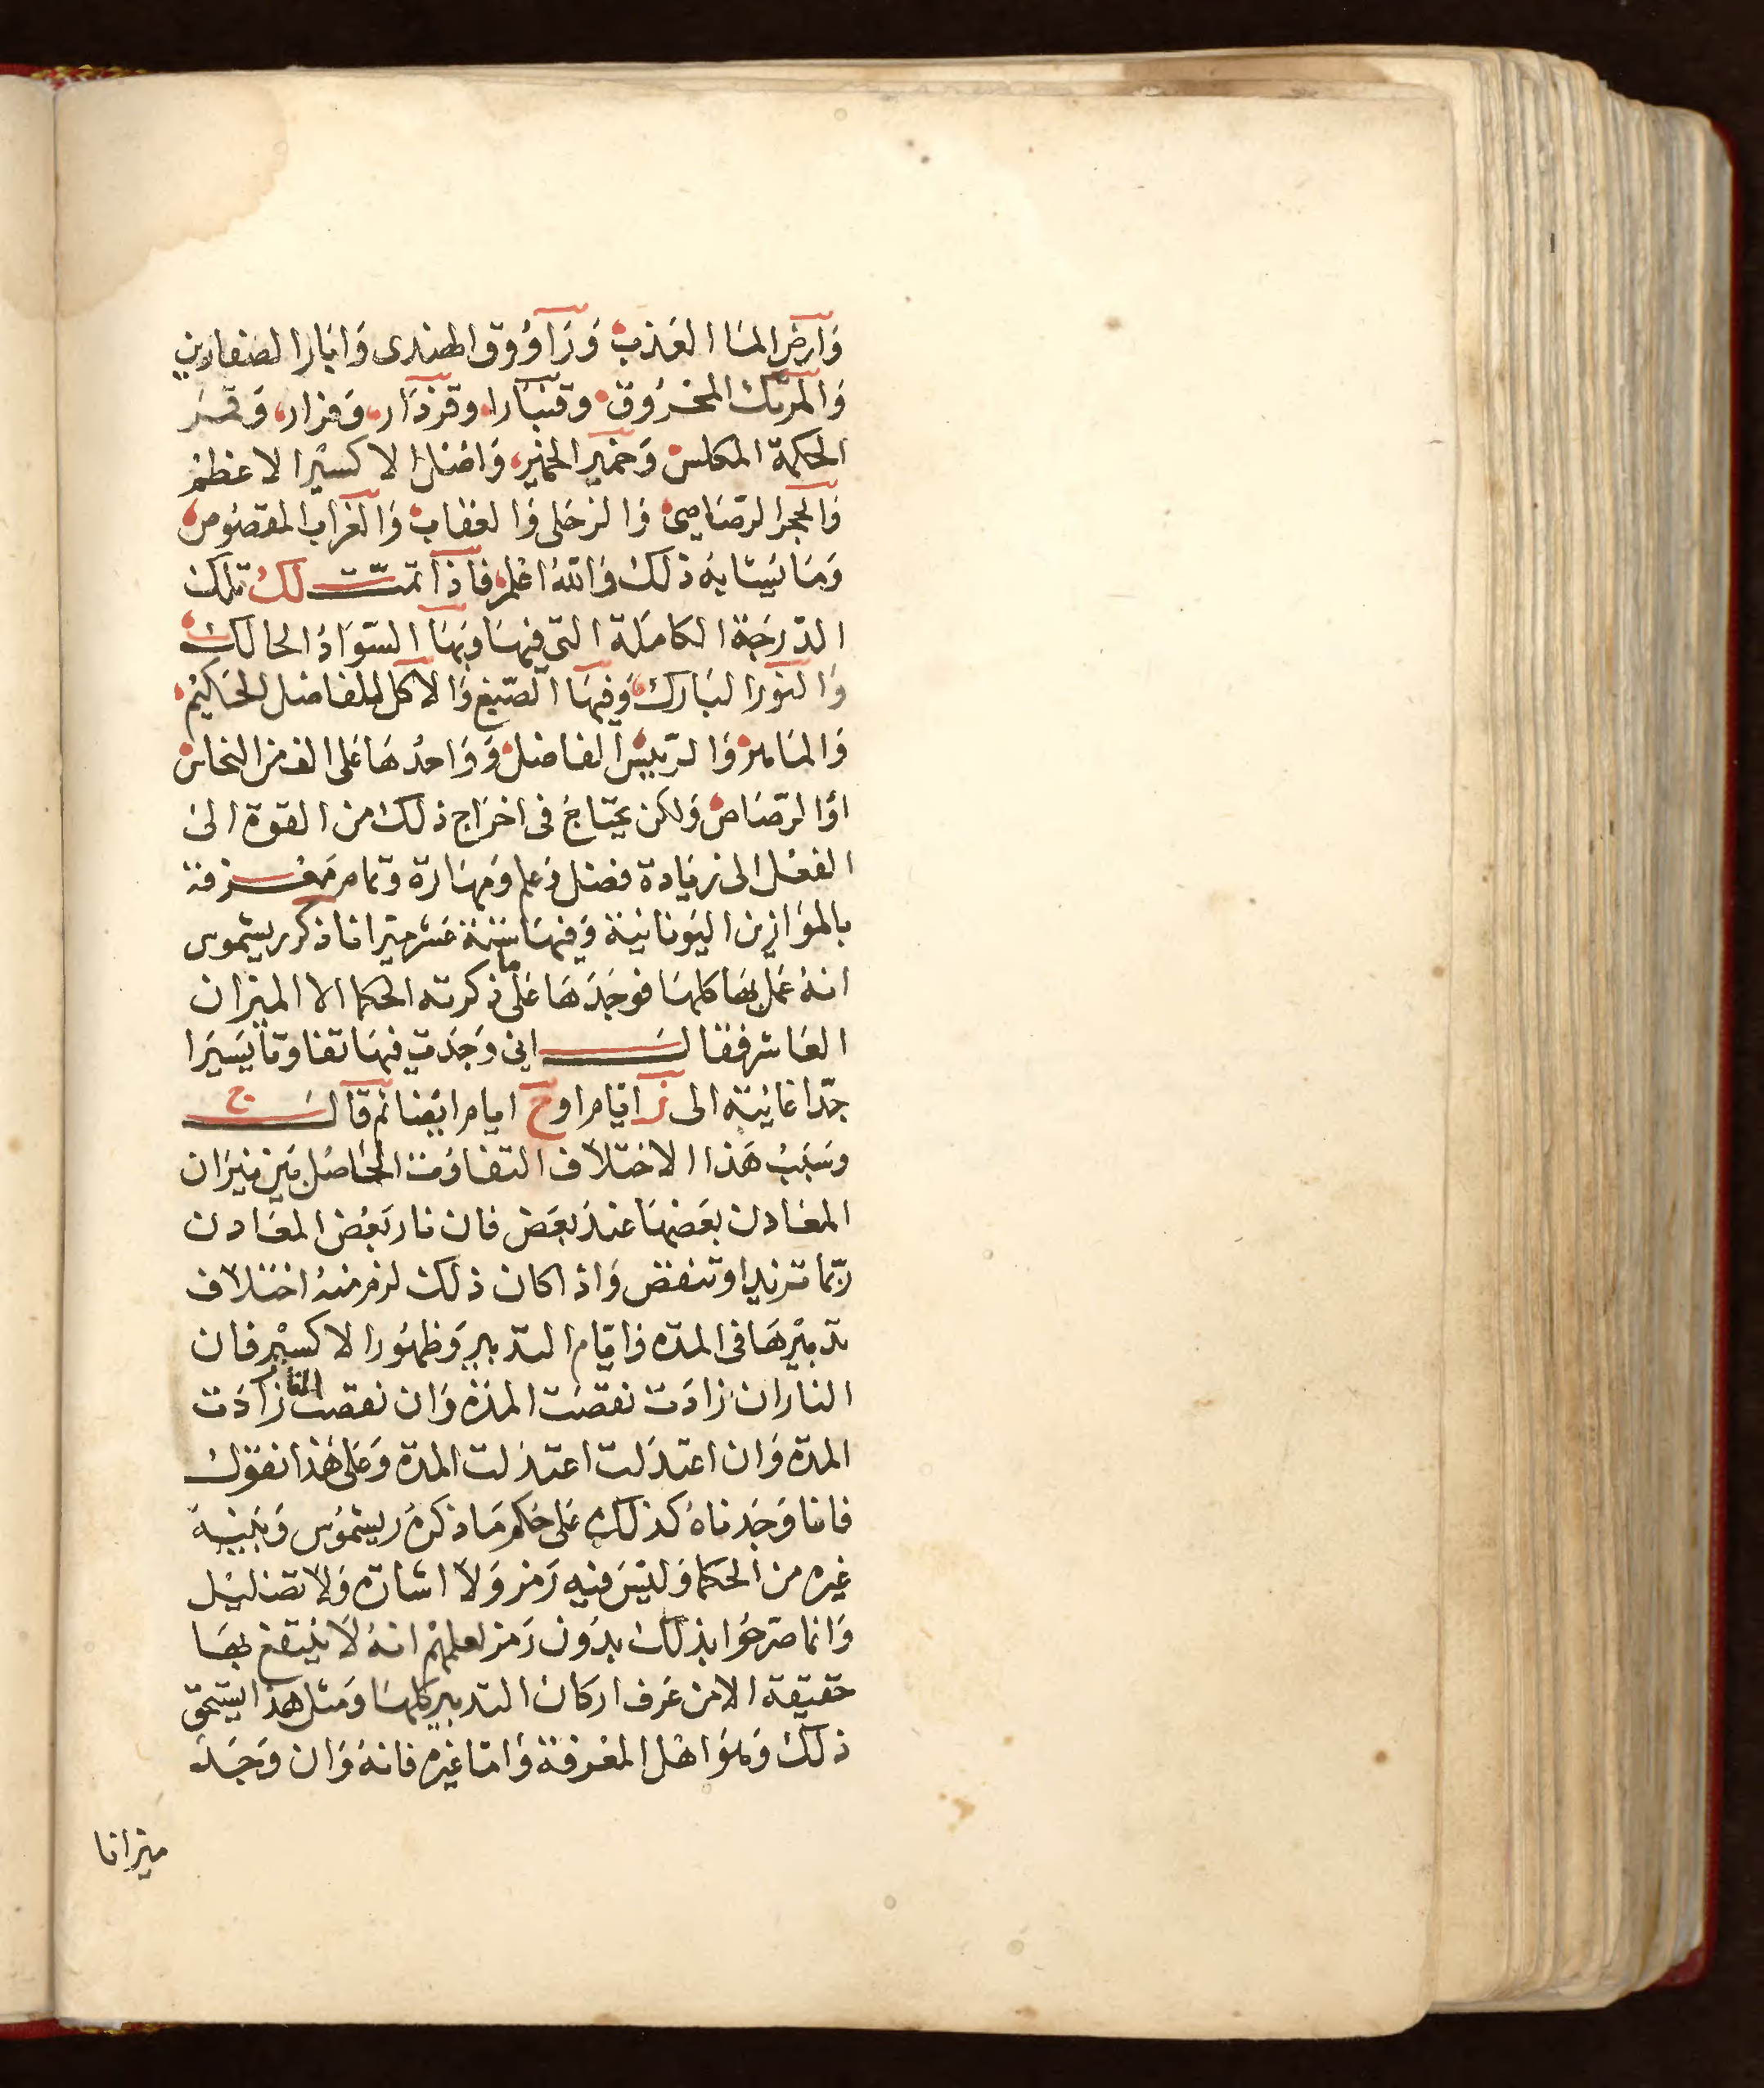 وَارض المَا العَذب وَزَاوُوق الهندى وَابَار الصفارين
وَالمرتك المحرُوق وقنبَار وقزدَار وَمزار وَقمَر
الحكمة المكلس وَخمير الخمير وَاصْل الاكسيْر الاعظم
وَالحجر الرصَاصى وَالزحَلى وَالعقاب وَالغرَاب المقصُوص
وَمَا يُشابهُ ذلك وَاللهُ اعْلم فاذا تمت لك تلك
الدّرجَة الكامَلة التى فيهَا وَبهَا السّوَادُ الحالك
وَالنوُر البَارك وَفيهَا الصّبغ وَالاكل للفاضل الحَكيْم
وَالمَاهر وَالرّييسْ الفاضل وَوَاحدُهَا عَلى الف من النحاس
اوْ الرّصَاص وَلكن يحتَاجُ فى اخرَاج ذلك من القوة الى
الفعْل الى زيَادة فضل وَعلم وَمهَارة وتمام مَعْرفة
بالموَازين اليوُنانيَة وَفيهَا ستة عَشر ميزانا ذكر ريسمُوس
انهُ عَمل بهَا كلهَا فوجَدَهَا عَلى ما ذكرته الحكما الا الميزان
العَاشر فقال انى وَجَدت فيهَا تفاوتا يَسيَرا
جدّا غايتة الى ز ايام او ح ايام ايضا ثم قال ج
وسَبَبُ هَذا الاختلاف التفاوُت الحَاصُل بَين ميزان
المعَادن بعَضهَا عند بعَض فان نار بَعْض المعَادن
ربّما تزيد او تنقض وَاذا كان ذلك لزم منهُ اختلاف
تدبيْرهَا فى المدّه وَايّام التدبير وَظهُور الاكسيْر فان
النار ان زادَت نقصَت المدّه وَان نقصت النار زادَت
المدّه وَان اعتدَلت اعتدَلت المدّة وَعَلى هَذا نقول
فانا وَجَدناهُ كذلك عَلى حُكم مَا ذكرهُ ريسمُوس وَبَينهُ
غيره من الحكما وَليْسَ فيه رَمز وَلا اشارَه وَلا تضليْل
وَانما صَرحُوا بذلك بدُون رَمز لعلمهمْ انهُ لَا يَنْتفع بهَا
حَقيقة الا من عَرف اركان التدبير كلهَا وَمثل هذا يستحق
ذلك وَهوَ اهْل المعْرفة وَامّا غيْره فانهُ وَان وَجَدَ
ميزانا